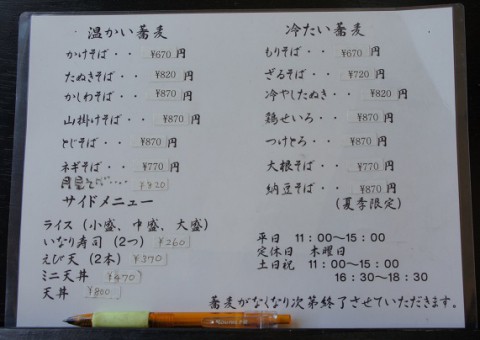 温かい蕎麦
かけそば・・ ¥670 円
たぬきそば・・ ¥820 円
かしわそば・・ ¥870 円
山掛けそば・・ ¥870 円
とじそば・・ ¥870 円
ネギそば・・ ¥770 円
月見そば‥‥
サイドメニュー
ライス (小盛、中盛、大盛)
いなり寿司 (2つ) ¥260
えび天 (2本) ¥370
ミニ天丼 ¥470
天丼 ¥800
冷たい蕎麦
もりそば・・ ¥670 円
ざるそば・・ ¥720 円
冷やしたぬき・・ ¥820 円
鶏せいろ・・ ¥870 円
つけとろ・・ ¥870 円
大根そば・・ ¥770 円
納豆そば・・ ¥870 円
(夏季限定)
平日 11:00〜15:00
定休日 木曜日
土日祝 11:00〜15:00
16:30〜18:30
蕎麦がなくなり次第終了させていただきます。